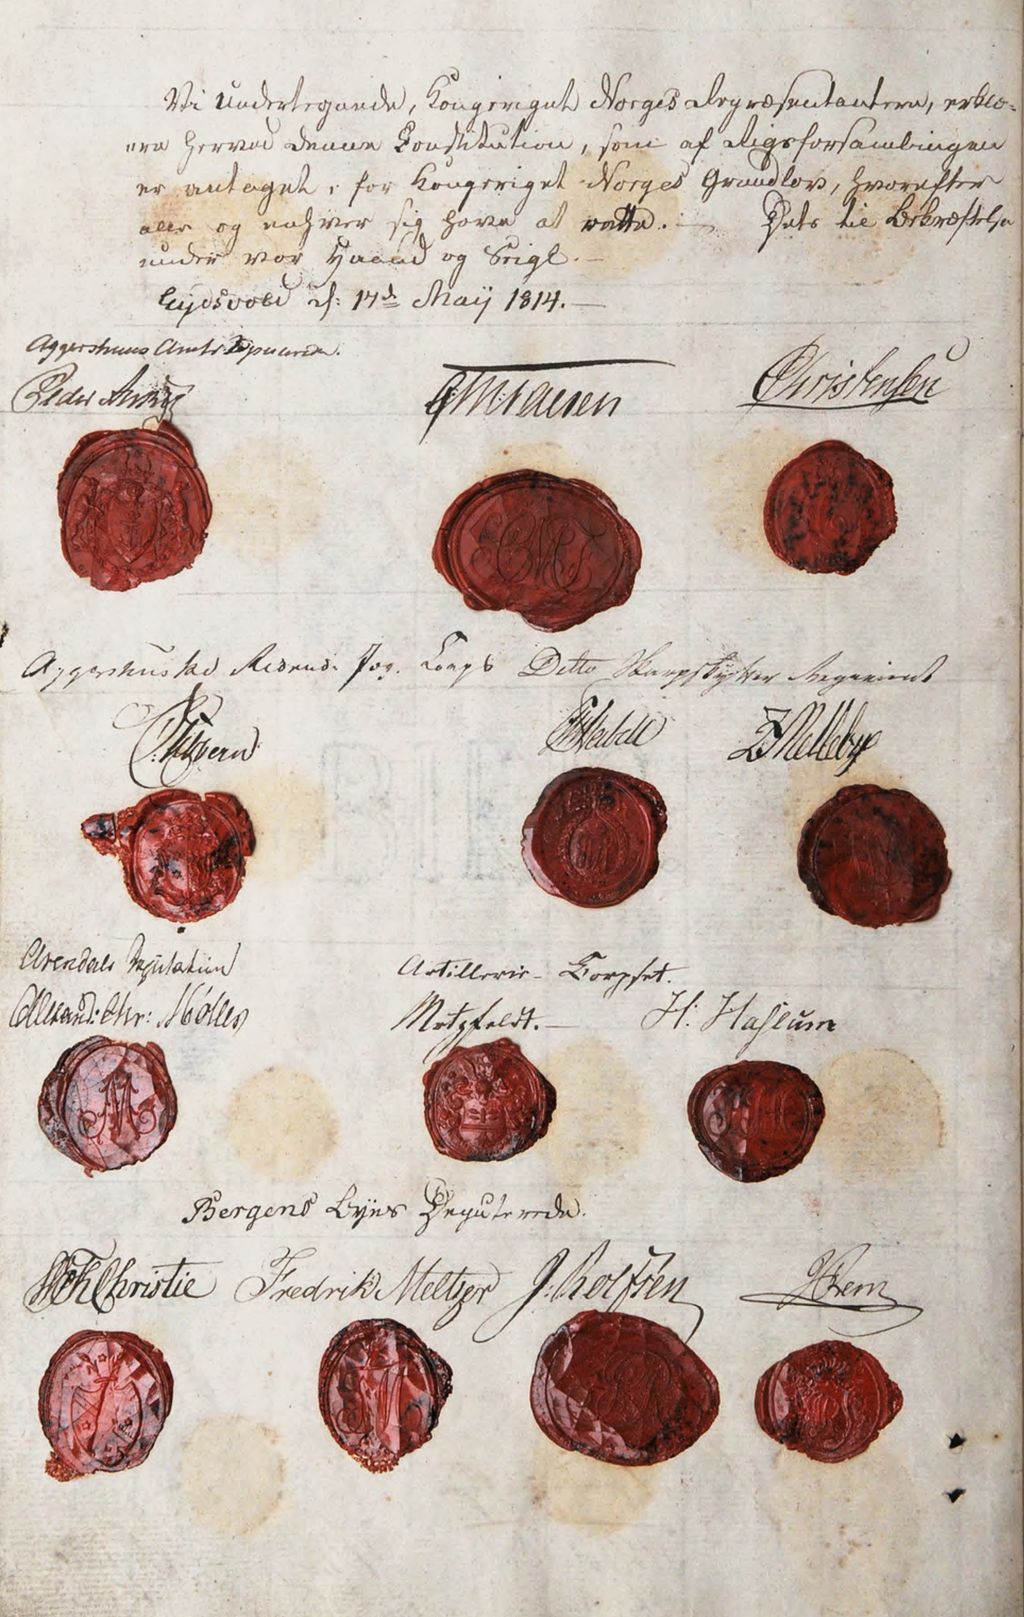 Vi undertegnede, Kongeriget Norges Repræsentantere, erklæ-
ere herved denne Constitution, som af Rigsforsamlingen
er antaget, for Kongeriget Norges Grundlov, hvorefter
alle og enhver sig have at rette. — Dets til Bekræftelse
under vor Haand og Seigl. —
Eydsvold d: 17de Maij 1814. —
Aggershuus Amts Deputerede.
Peder Anker Christensen
Aggershuske Ridend: Jæg. Corps Ditto Skarpskytter Regiment
Z Mellebye
Arendals Deputation Artillerie-Corpset.
Alexand: Chr: Møller Motzfeldt. — H: Haslum
Bergens Byes Deputerede.
WFK Christie Fredrik Meltzer J: Rolfsen JRem
CMT